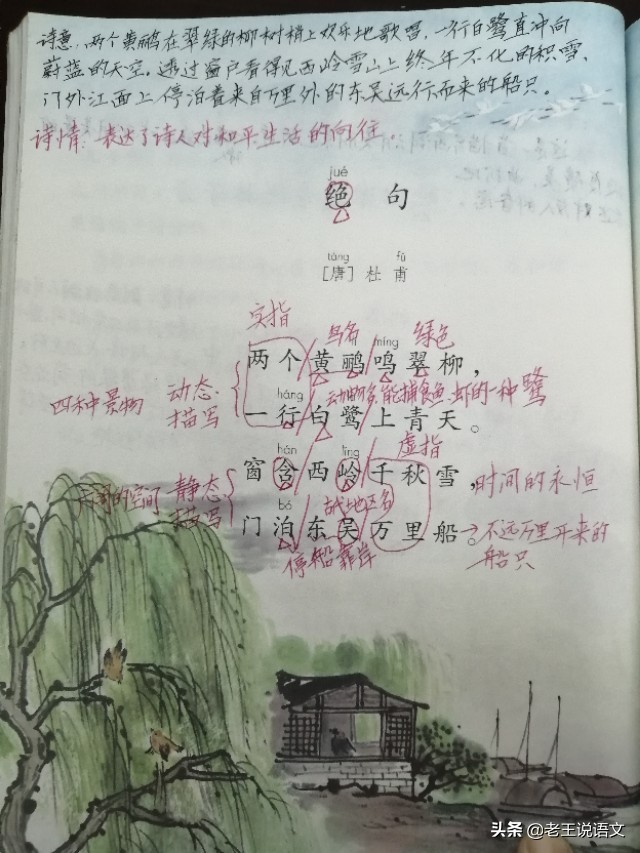 诗意,两个黄鹂在翠绿的柳树梢上欢乐地歌唱,一行白鹭直冲向
蔚蓝的天空。透过窗户看得见西岭雪山上终年不化的积雪,
门外江面上停泊着来自万里外的东吴远行而来的船只。
诗情:表达了诗人对和平生活的向往。
jué
绝 句
táng fǔ
[唐]杜 甫
实指 鸟名 míng 绿色
两个黄鹂鸣翠柳,
四种景物 动态描写
háng 动物名,能捕食鱼、虾的一种鹭
一行白鹭上青天。
hán lǐng 虚指
窗含西岭千秋雪,时间的永恒
不同的空间 静态描写
bó 古代地区名
门泊东吴万里船。→不远万里开来的船只
停船靠岸
头条 @老王说语文